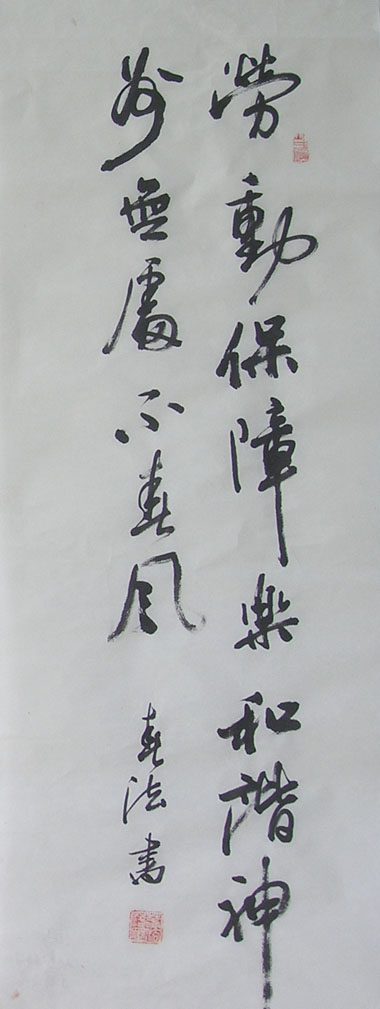 勞動保障樂和諧神
州無處不春風
春法書